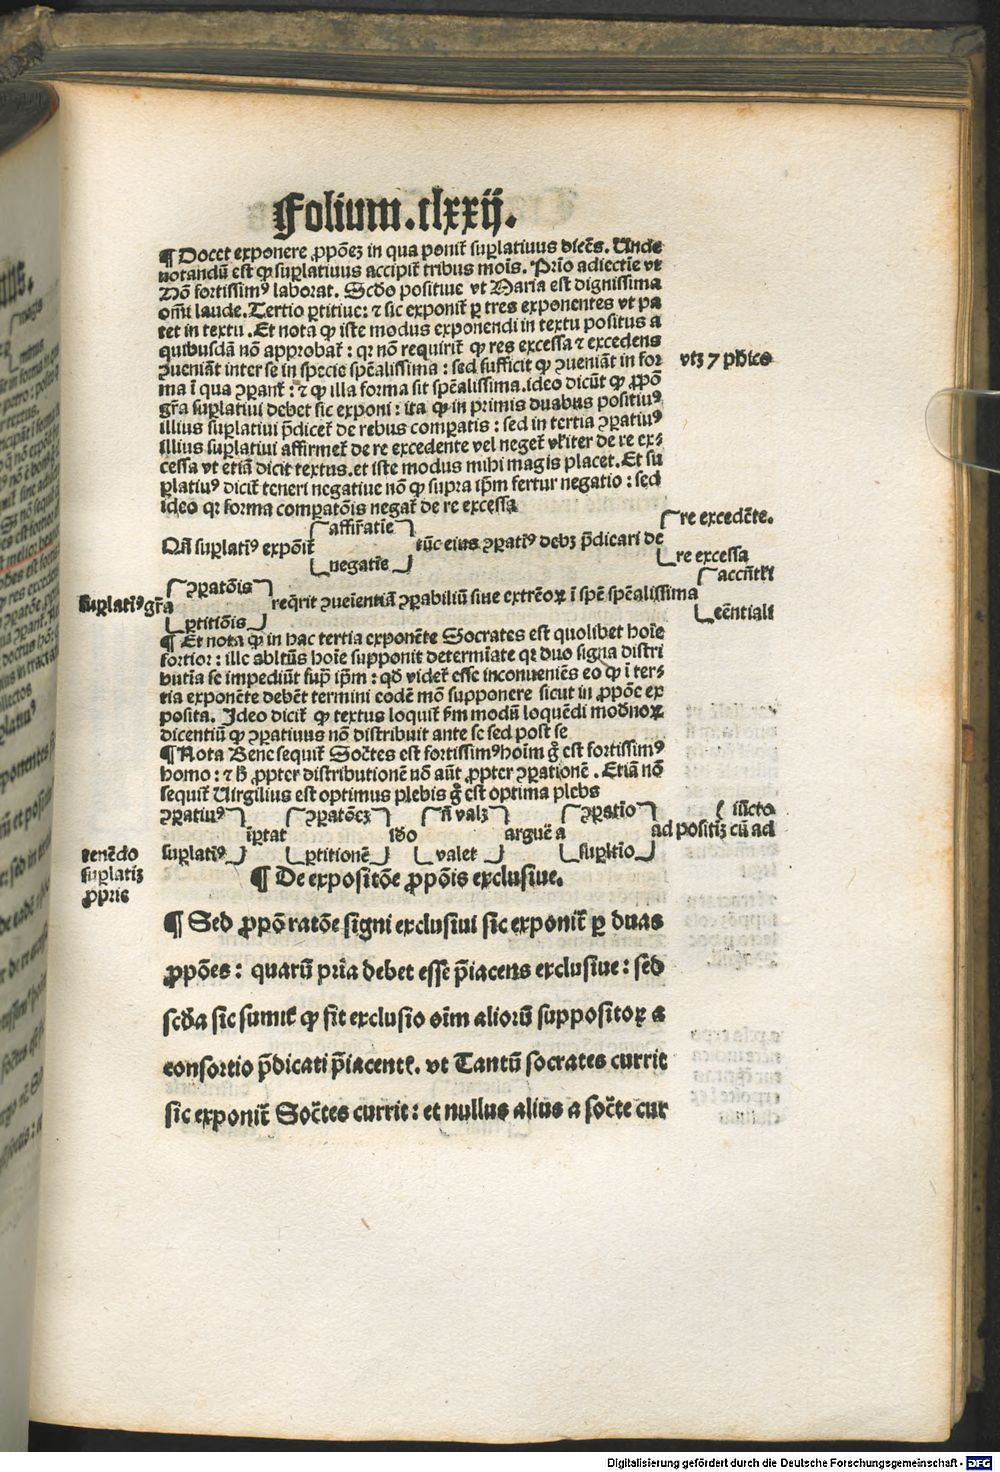 Folium.clxxij.
¶ Docet exponere ꝓpõeʒ in qua ponit̃ suꝑlatiuus dicẽs. Unde
notandũ est ꝙ suꝑlatiuus accipit̃ tribus moĩs. Prĩo adiectiẽ vt
Nõ fortissimꝰ laborat. Scðo positiue vt Maria est dignissima
omĩ laude. Tertio ꝑtitiue: ⁊ sic exponit̃ ꝑ tres exponentes vt pa
tet in textu. Et nota ꝙ iste modus exponendi in textu positus a
quibusdã nõ approbat̃: qꝛ nõ requirit̃ ꝙ res excessa ⁊ excedens
ꝯueniãt inter se in specie spẽalissima: sed sufficit ꝙ ꝯueniãt in for
ma ĩ qua ꝯꝑant̃: ⁊ ꝙ illa forma sit spẽalissima. ideo dicũt ꝙ ꝓpõ
gr̃a suꝑlatiui debet sic exponi: ita ꝙ in primis duabus positiuꝰ
illius suꝑlatiui p̃dicet̃ de rebus comꝑatis: sed in tertia ꝯꝑatiuꝰ
illius suꝑlatiui affirmet̃ de re excedente vel neget̃ vĺiter de re ex⸗
cessa vt etiã dicit textus. et iste modus mihi magis placet. Et su
ꝑlatiuꝰ dicit̃ teneri negatiue nõ ꝙ supra ip̃m fertur negatio: sed
ideo qꝛ forma comꝑatõis negat̃ de re excessa
vtʒ 7 pħice
Qñ suꝑlatiꝰ exponit̃
affir̃atiẽ
negatiẽ
tũc eius ꝯꝑatiꝰ debʒ p̃dicari de
re excedẽte.
re excessa
Suꝑlatiꝰ gr̃a
ꝯꝑatõis
ꝑtitiõis
reqr̃it ꝯueĩentiã ꝯꝑabiliũ siue extrẽoꝝ ĩ spẽ spẽalissima
accñt̃li
eẽntiali
¶ Et nota ꝙ in hac tertia exponẽte Socrates est quolibet hoĩe
fortior: ille abltũs hoĩe supponit determĩate qꝛ duo signa distri
butĩa se impediũt sup̃ ip̃m: qð videt̃ esse inconueniẽs eo ꝙ ĩ ter⸗
tia exponẽte debẽt termini eodẽ mõ supponere sicut in ꝓpõe ex
posita. Ideo dicit̃ ꝙ textus loquit̃ ẜm modũ loquẽdi modnoꝝ
dicentiũ ꝙ ꝯꝑatiuus nõ distribuit ante se sed post se
¶ Nota Bene sequit̃ Soc̃tes est fortissimꝰ hoĩm g̃ est fortissimꝰ
homo: ⁊ ħ ꝓpter distributionẽ nõ aũt ꝓpter ꝯꝑationẽ. Etiã nõ
sequit̃ Uirgilius est optimus plebis g̃ est optima plebs
ꝯꝑatiuꝰ
suꝑlatiꝰ
ĩꝑtat
ꝯꝑatõeʒ
ꝑtitionẽ
iðo
ñ valʒ
valet
arguẽ a
ꝯꝑatĩo
suꝑltĩo
ad positiʒ cũ ad
iũcto
tenẽdo
suꝑlatiʒ
ꝓpꝛie
¶ De expositõe ꝓpõis exclusiue.
¶ Sed ꝓpõ ratõe signi exclusiui sic exponit̃ ꝑ duas
ꝓpões: quarũ pr̃ia debet esse p̃iacens exclusiue: sed
scðа sic sumit̃ ꝙ sit exclusio oĩm aliorũ suppositoꝝ a
consortio p̃dicati p̃iacent̃. vt Tantũ socrates currit
sic exponit̃ Soc̃tes currit: et nullus alius a soc̃te cur
Digitalisierung gefördert durch die Deutsche Forschungsgemeinschaft - DFG